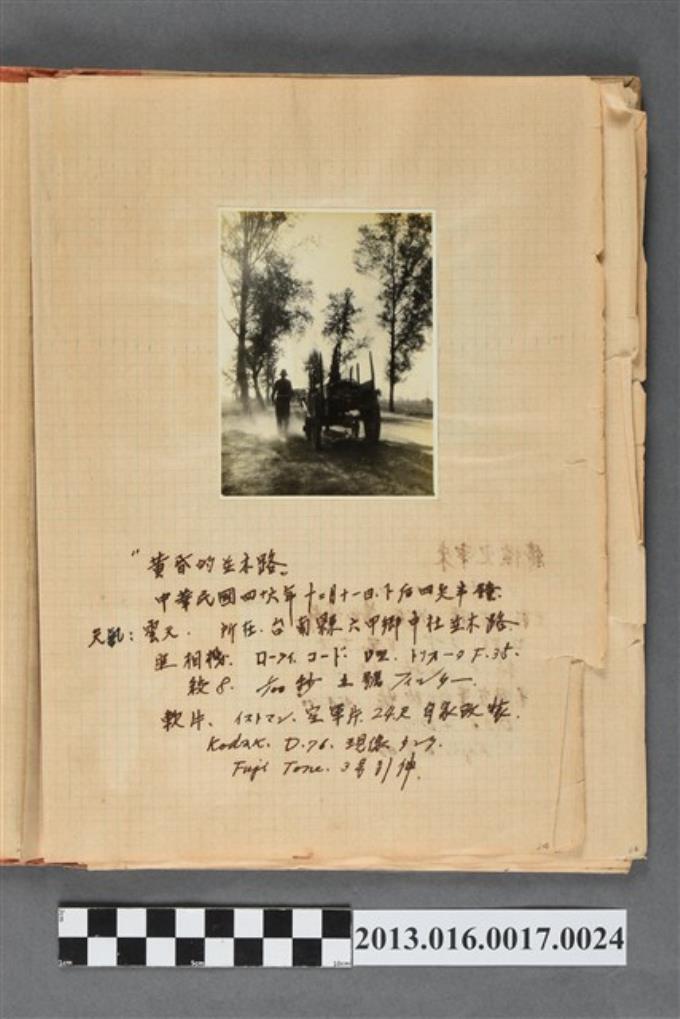 "黄昏的並木路"
中華民國四十六年十二月十一日.下后四点半鐘.
天氣：雲天. 所在.台南縣六甲鄉中社並木路
相機. ローライ コード.
絞8. 1/100秒 フィルター.
軟片、イストマン、空軍片.24尺 自家改裝.
Kodak. D.76. 現像タンク.
Fuji Tone. 3号引伸.
2013.016.0017.0024